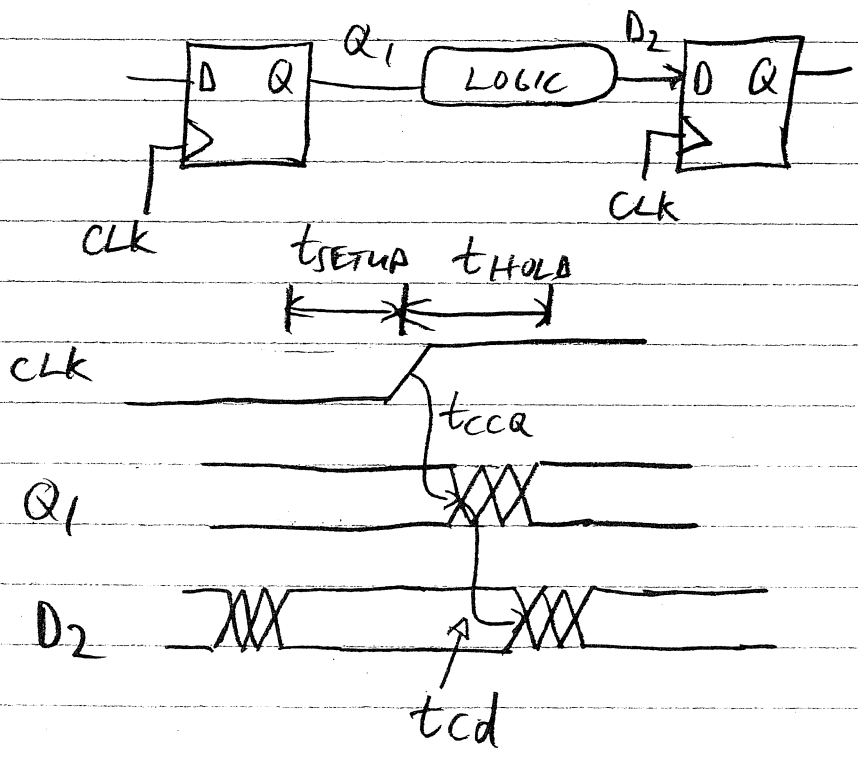 Q1 D2
D Q LOGIC D Q
CLK CLK
tSETUP tHOLD
CLK
tCCQ
Q1
D2
tcd